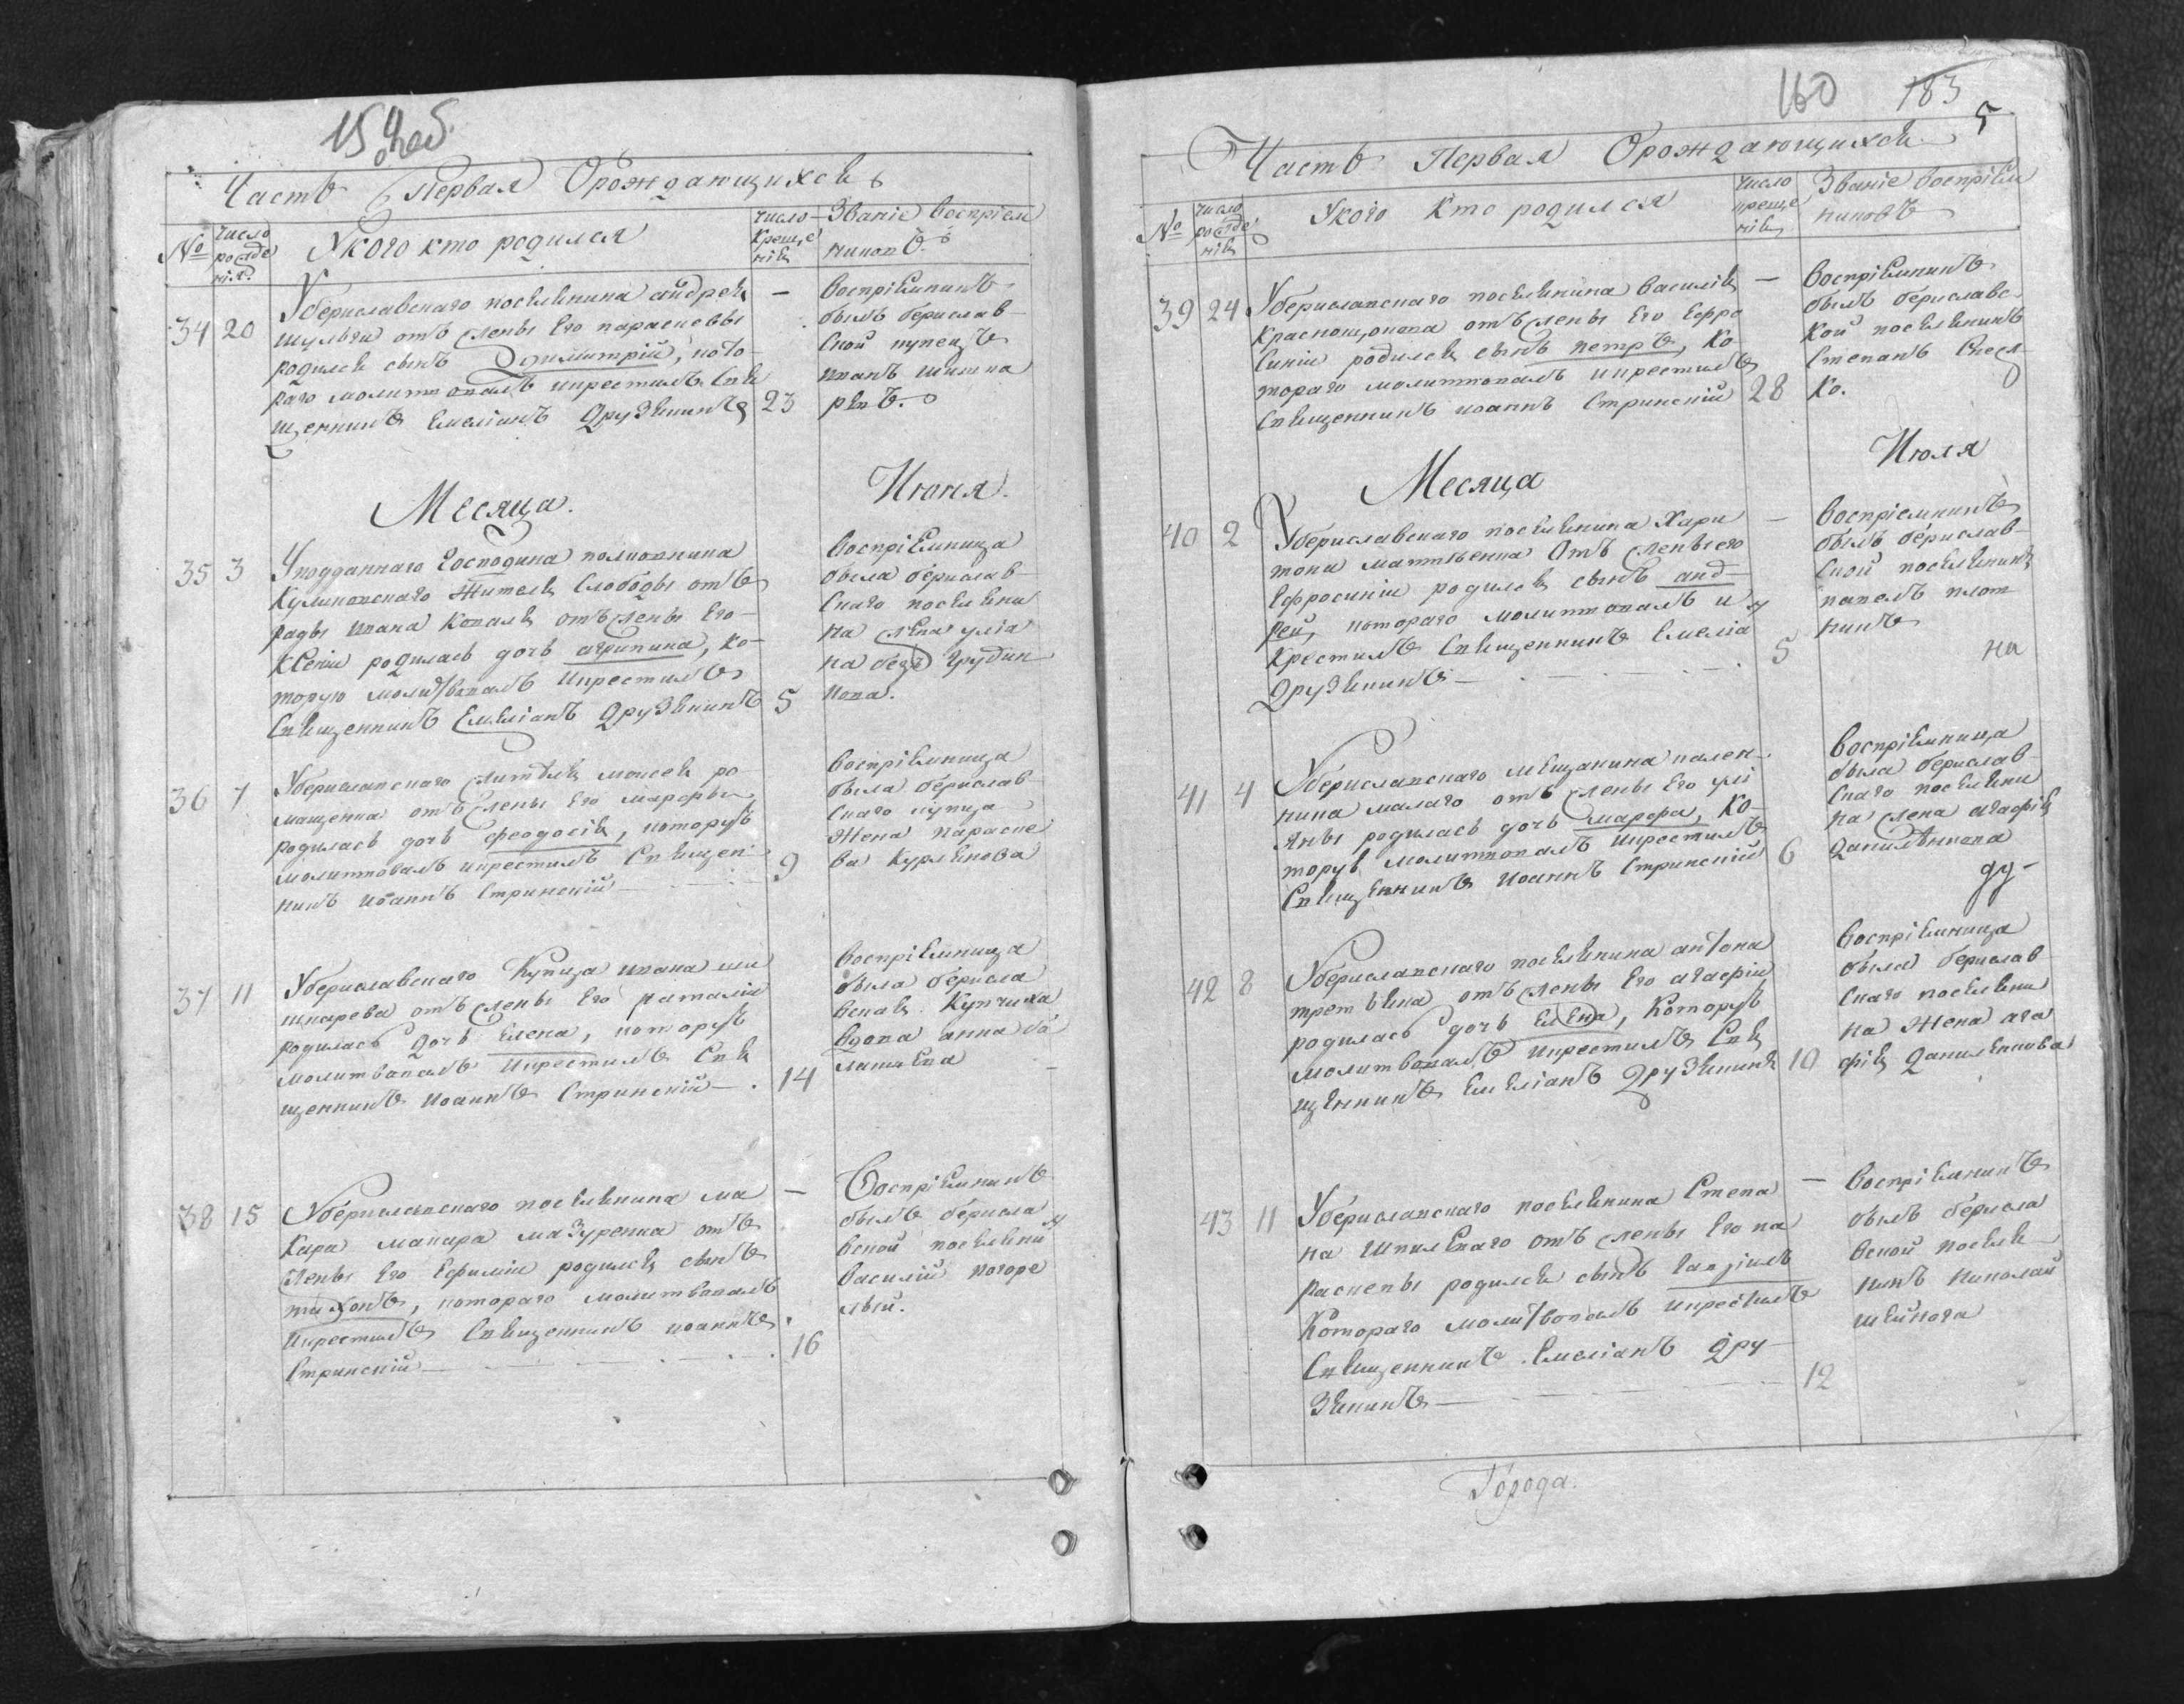 Часть Первая О рождающихся
№ число рожденія
У кого кто родился
число крещенія
Званіе воспріемниковъ
34 20
У бериславскаго поселянина андрея
шульги отъ жены Его парасковвы
родился сынъ димитрій, кото-
раго молитвовалъ икрестилъ Свя
щенникъ Емеліанъ Друзякинъ 23
воспріемникъ
былъ берислав-
ской купецъ
иванъ шишка
ревъ.
Месяца. Июня.
35 3
У подданнаго Господина полковника
Куликовскаго Жителя Слободы отъ
рады ивана Коваля отъ жены Его
Ксеніи родилась дочь агрипина, ко-
торую молитвовалъ икрестилъ
Священникъ Емеліанъ Друзякинъ 5
воспріемница
была берислав-
скаго поселяни
на жена уліа
на
36 7
У бериславскаго жителя моисея ро-
мащенка отъ жены Его марфы
родилась дочь феодосія, которую
молитвовалъ икрестилъ Священ
никъ иоаннъ Стринскій 9
воспріемница
была берислав-
скаго купца
Жена параске
ва
37 11
У бериславскаго Купца ивана ши
шкарева отъ жены Его наталіи
родилась дочь Елена, которую
молитвовалъ икрестилъ Свя
щенникъ иоаннъ Стринскій 14
воспріемница
была берисла
вская Купчиха
вдова анна ба
лашева
38 15
У бериславскаго поселянина ма
кара макара мазуренка отъ
жены Его Ефиміи родился сынъ
тихонъ, котораго молитвовалъ
икрестилъ Священникъ иоаннъ
Стринскій 16
Воспріемникъ
былъ берисла
вской поселяни
василій погоре
лый.
160 183 5
Часть Первая О рождающихся
№ число рожденія
У кого кто родился
число крещенія
Званіе воспріем
никовъ
39 24
У бериславскаго поселянина василія
краснощокова отъ жены Его Ефро
синіи родился сынъ петръ, ко-
тораго молитвовалъ икрестилъ
Священникъ иоаннъ Стринскій 28
воспріемникъ
былъ бериславс-
кой поселянинъ
Степанъ
ко.
Месяца Июля
40 2
У бериславскаго поселянина Хари
тона матвеенка отъ жены его
Ефросиніи родился сынъ анд-
рей, котораго молитвовалъ и
Крестилъ Священникъ Емеліа
Друзякинъ 5
воспріемникъ
былъ берислав-
ской поселянинъ
павелъ плот
никъ
41 4
У бериславскаго мещанина
малаго отъ жены Его улі
яны родилась дочь марфа, ко-
торую молитвовалъ икрестилъ
Священникъ иоаннъ Стринскій 6
воспріемница
была берислав-
скаго поселяни
на жена агафія
данилѣнкова
42 8
У бериславскаго поселянина антона
отъ жены Его агафіи
родилась дочь елена, которую
молитвовалъ икрестилъ Свя
щенникъ Емеліанъ Друзякинъ 10
воспріемница
была берислав
скаго поселяни
на Жена ага
фія даниленкова
43 11
У бериславскаго поселянина Степа
на отъ жены Его па
расковы родился сынъ гавріилъ
Котораго молитвовалъ икрестилъ
Священникъ Емеліанъ Дру
зякинъ 12
воспріемникъ
былъ берисла
вской поселя
нинъ николай
Города.